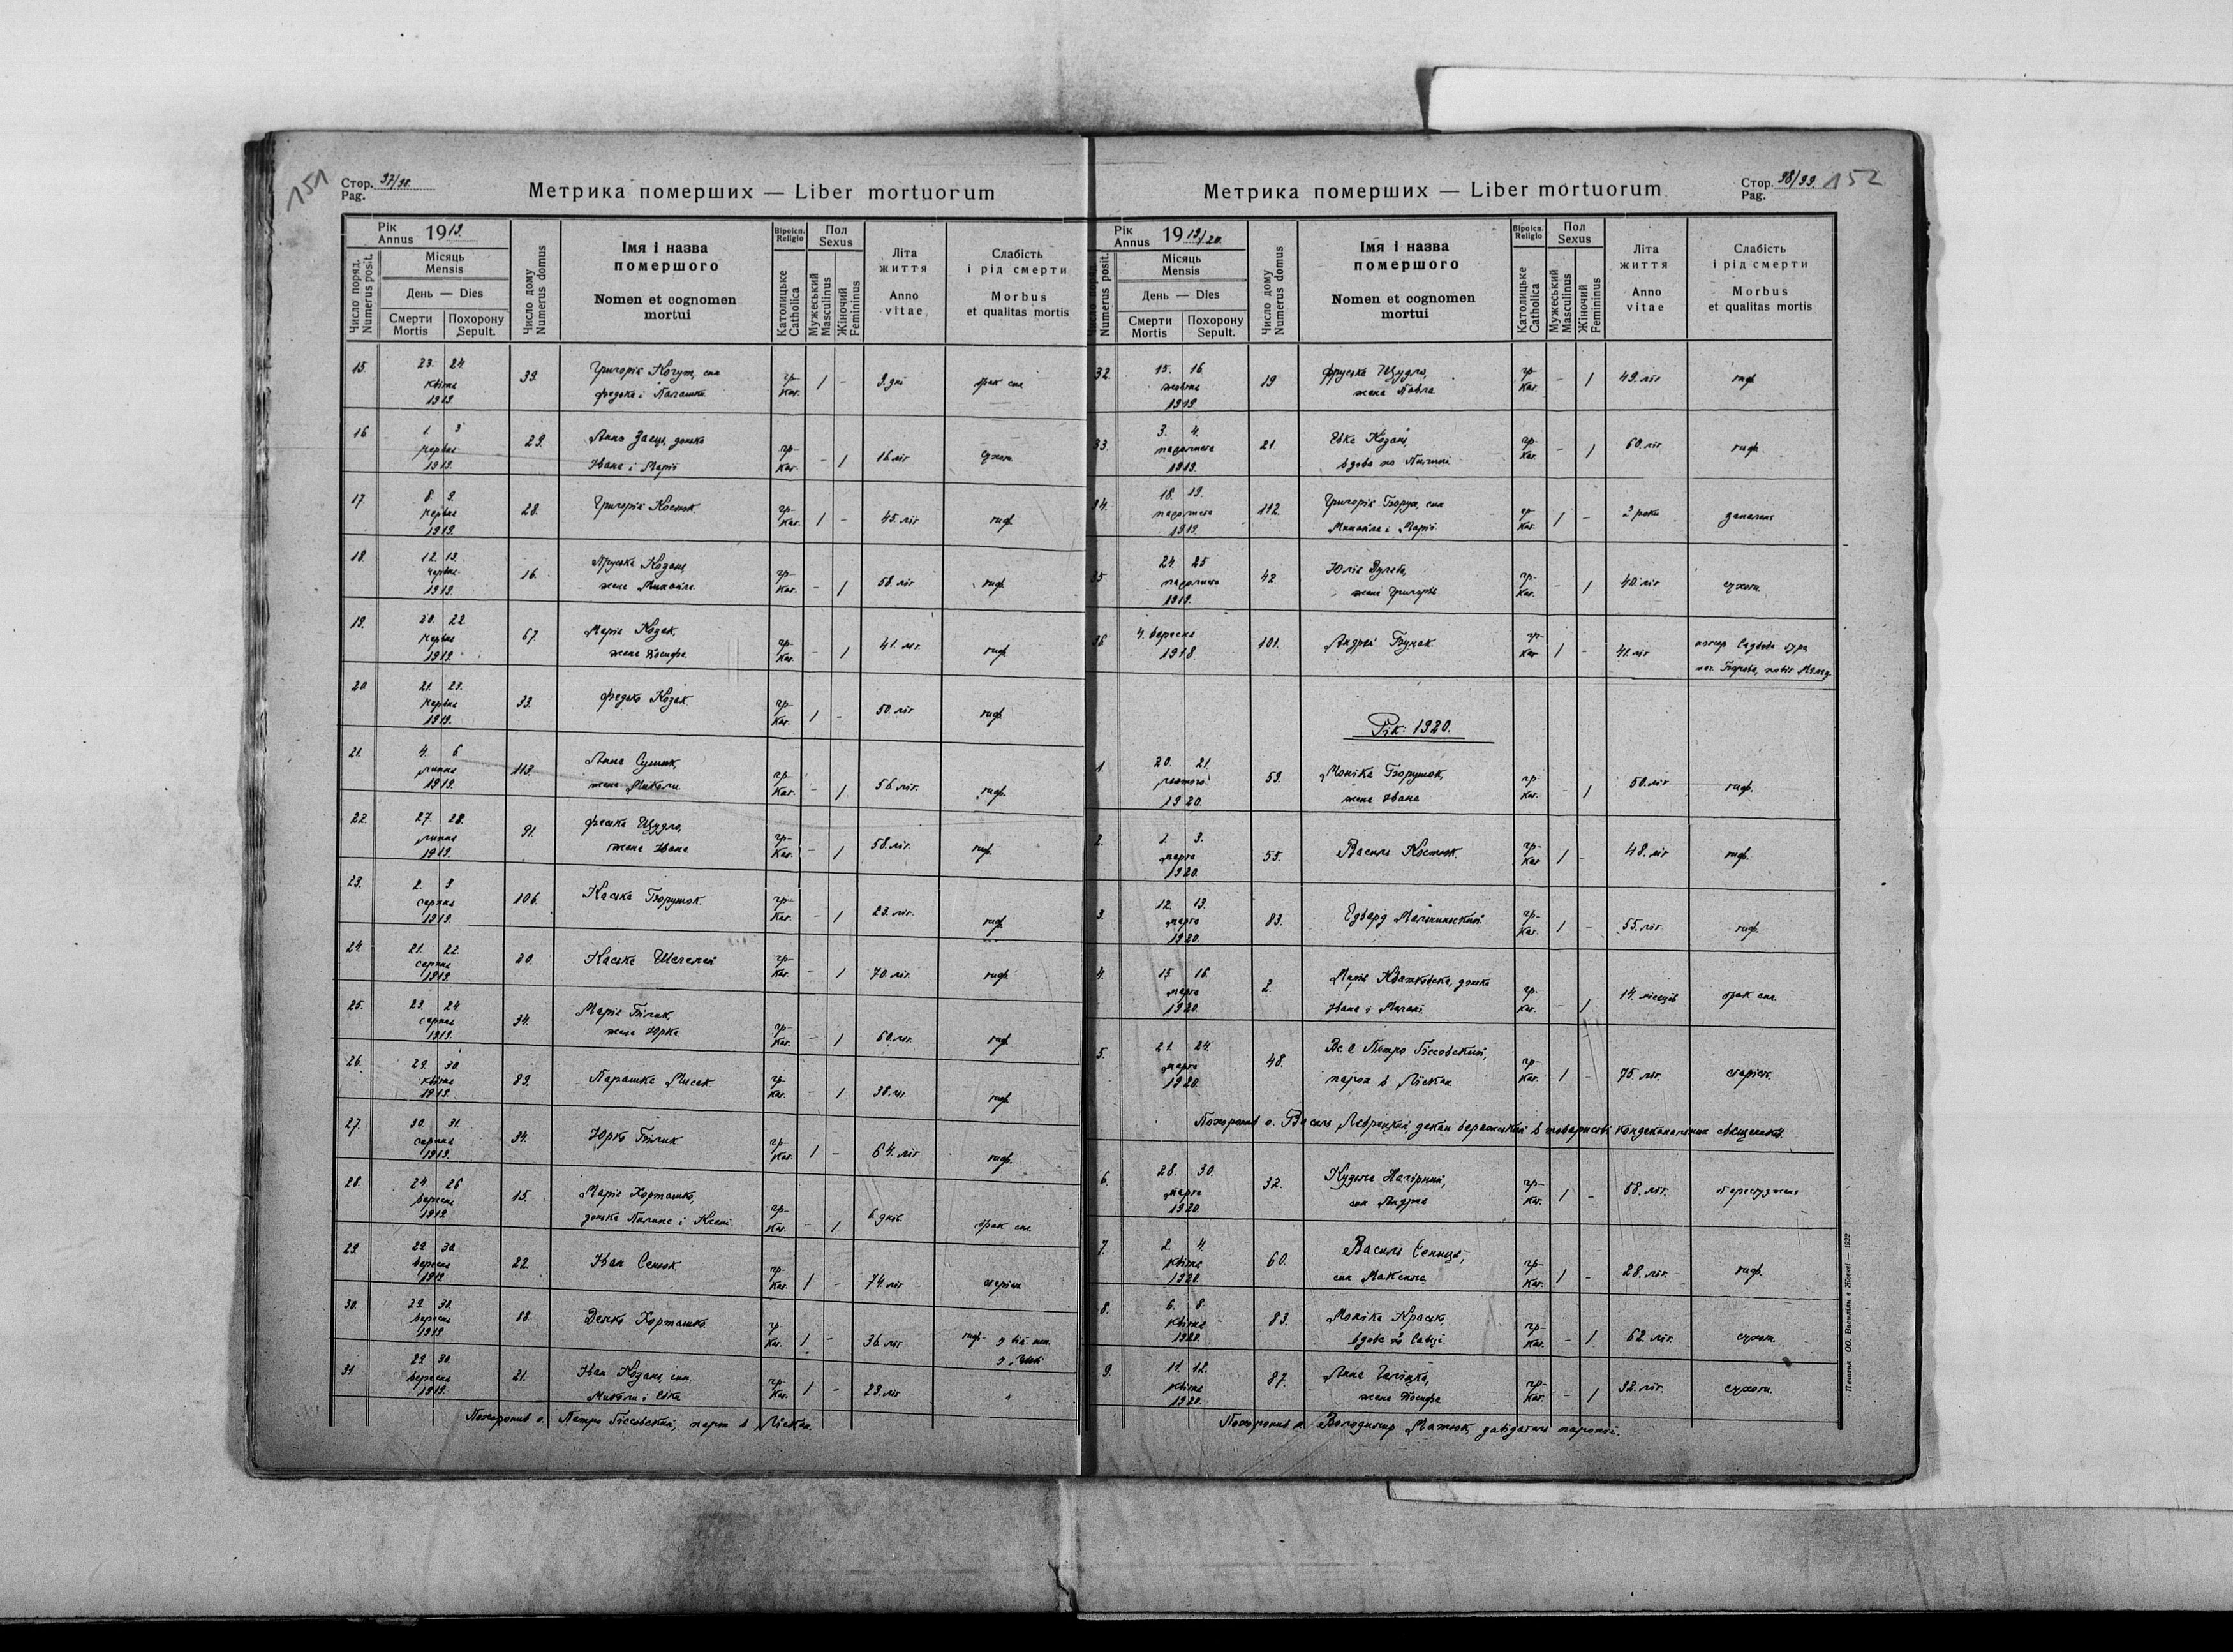 151
Стор. 97/98.
Pag.
Метрика померших — Liber mortuorum
Рік
Annus 1919.
Число поряд.
Numerus posit.
Місяць
Mensis
День — Dies
Смерти
Mortis
Похорону
Sepult.
Число дому
Numerus domus
Імя і назва
помершого
Nomen et cognomen
mortui
Віроісп.
Religio
Католицьке
Catholica
Пол
Sexus
Мужеський
Masculinus
Жіночий
Femininus
Літа
життя
Anno
vitae
Слабість
і рід смерти
Morbus
et qualitas mortis
15. 23. 24. 39. Григорій Когут, син гр- 1 - 9. дні брак сил
квітня Федька і Палашки кат.
1919.
16 1. 3 29. Анна Заєць, донька гр- - 1 16. літ сухоти
червня Івана і Марії кат.
1919.
17. 8. 9. 28. Григорій Костюк гр- 1 - 45. літ тиф
червня кат.
1919.
18 12. 13. 16. Козань гр- - 1 58. літ тиф
червня жена Михайла кат.
1919.
19. 20. 22. 67. Марія Козак, гр- - 1 41. літ тиф
червня жена Йосифа кат.
1919.
20 21. 23. 39. Федько Козак гр- 1 - 50. літ тиф
червня кат.
1919.
21. 4. 6 113. Анна гр- - 1 56. літ. тиф.
липня жена Миколи кат.
1919.
22. 27. 28. 91. Феська Щудло, гр- - 1 58. літ. тиф.
липня жена Івана кат.
1919.
23. 2. 3 106. Каська Борушок. гр- - 1 23. літ. тиф.
серпня кат.
1919.
24. 21. 22. 20. Каська гр- - 1 70. літ. тиф
серпня кат.
1919.
25. 23. 24. 34. Марія Білик, гр- - 1 60. літ. тиф
серпня жена Юрка кат.
1919.
26. 29. 30. 89. Парашка Мисак гр- - 1 38. літ. тиф
квітня кат.
1919.
27. 30. 31. 34. Юрко Білик гр- 1 - 64. літ тиф.
серпня кат.
1919.
28. 24. 26 15. Марія Корташко, гр- - 1 6. днів. брак сил.
вересня донька Пилипа і Ксені кат.
1919
29. 29. 30. 22 Іван Сенюк гр- 1 - 74. літ старість
вересня кат.
1919.
30. 29. 30. 88. Корташко гр- 1 - 36. літ тиф
вересня кат.
1919
31. 29. 30. 21. Іван Козань, син гр- 1 - 29. літ "
вересня Миколи і Евки кат.
1919.
Похоронив о. Петро Біссовский, парох в Лісках.
Стор. 98/99. 152
Pag.
Метрика померших — Liber mortuorum
Рік
Annus 1919/20.
Numerus posit.
Місяць
Mensis
День — Dies
Смерти
Mortis
Похорону
Sepult.
Число дому
Numerus domus
Імя і назва
помершого
Nomen et cognomen
mortui
Віроісп.
Religio
Католицьке
Catholica
Пол
Sexus
Мужеський
Masculinus
Жіночий
Femininus
Літа
життя
Anno
vitae
Слабість
і рід смерти
Morbus
et qualitas mortis
32. 15. 16 19 Фруська Щудло, гр- - 1 49. літ тиф
жовтня жена Павла кат.
1919.
33. 3. 4. 21. Евка Козань, гр- - 1 60. літ тиф
падолиста вдова по кат.
1919.
34. 18. 19. 112. Григорій Борух, син гр- 1 - 2 роки запалень
падолиста Михайла і Марії кат.
1919.
35 24. 25 42. Юлія Дулеба, гр- - 1 40. літ сухоти
падолиста жена Григорія кат.
1919.
36 4. вересня 101. Андрей Бунак гр- 1 - 41. літ
1918. кат
Рік: 1920.
1. 20. 21. 59. Моніка Борушок, гр- - 1 50. літ тиф.
лютого жена Івана кат.
1920.
2. 1. 3. 55. Василь Костюк. гр- 1 - 48. літ тиф.
марта кат
1920.
3. 12. 13. 83. Едвард гр- 1 - 55. літ. тиф.
марта кат.
1920.
4. 15 16. 2. Марія Квятковска, донька гр- - 1 14. місяців брак сил.
марта Івана і кат.
1920.
5. 21. 24. 48. Вс. о. Петро Біссовский, гр- 1 - 75. літ. старість.
марта парох в Лісках кат.
1920.
Похоронив о. Василь Лаврецкий, декан варяжский в товаристві кондеканальних священиків.
6. 28. 30. 32. Нагірний, гр- 1 - 68. літ. перестуджене
марта син Андрія кат.
1920.
7. 2. 4. 60. Василь Сениця, гр- 1 - 28. літ. тиф.
квітня син Максима кат.
1920.
8. 6. 8. 83. Моніка Красько, гр- - 1 62. літ. сухоти.
квітня вдова по кат.
1920.
9. 11. 12. 87. Анна гр- - 1 32. літ. сухоти.
квітня жена Йосифа кат.
1920.
Похоронив о. Володимир Матюк, завідатель парохії.